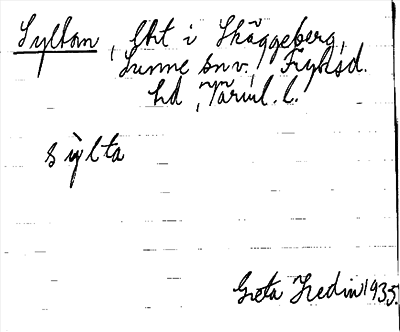 Syltan, Ght i Skäggeberg,
Sunne sn v., Fryksd.
hd, Värml. l.
sỳlta
Greta Hedin 1935.